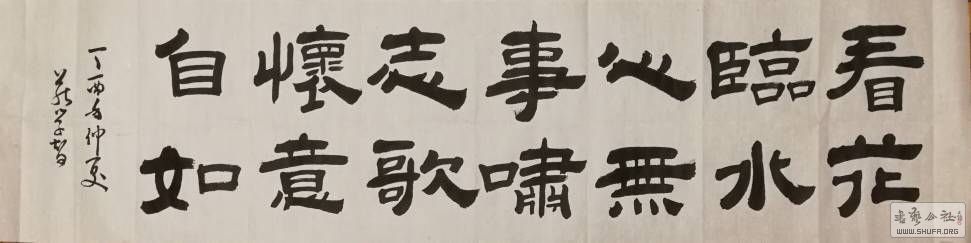 看花
臨水
心無
事嘯
志歌
懷意
自如
丁酉年仲夏
書藝公社
WWW.SHUFA.ORG